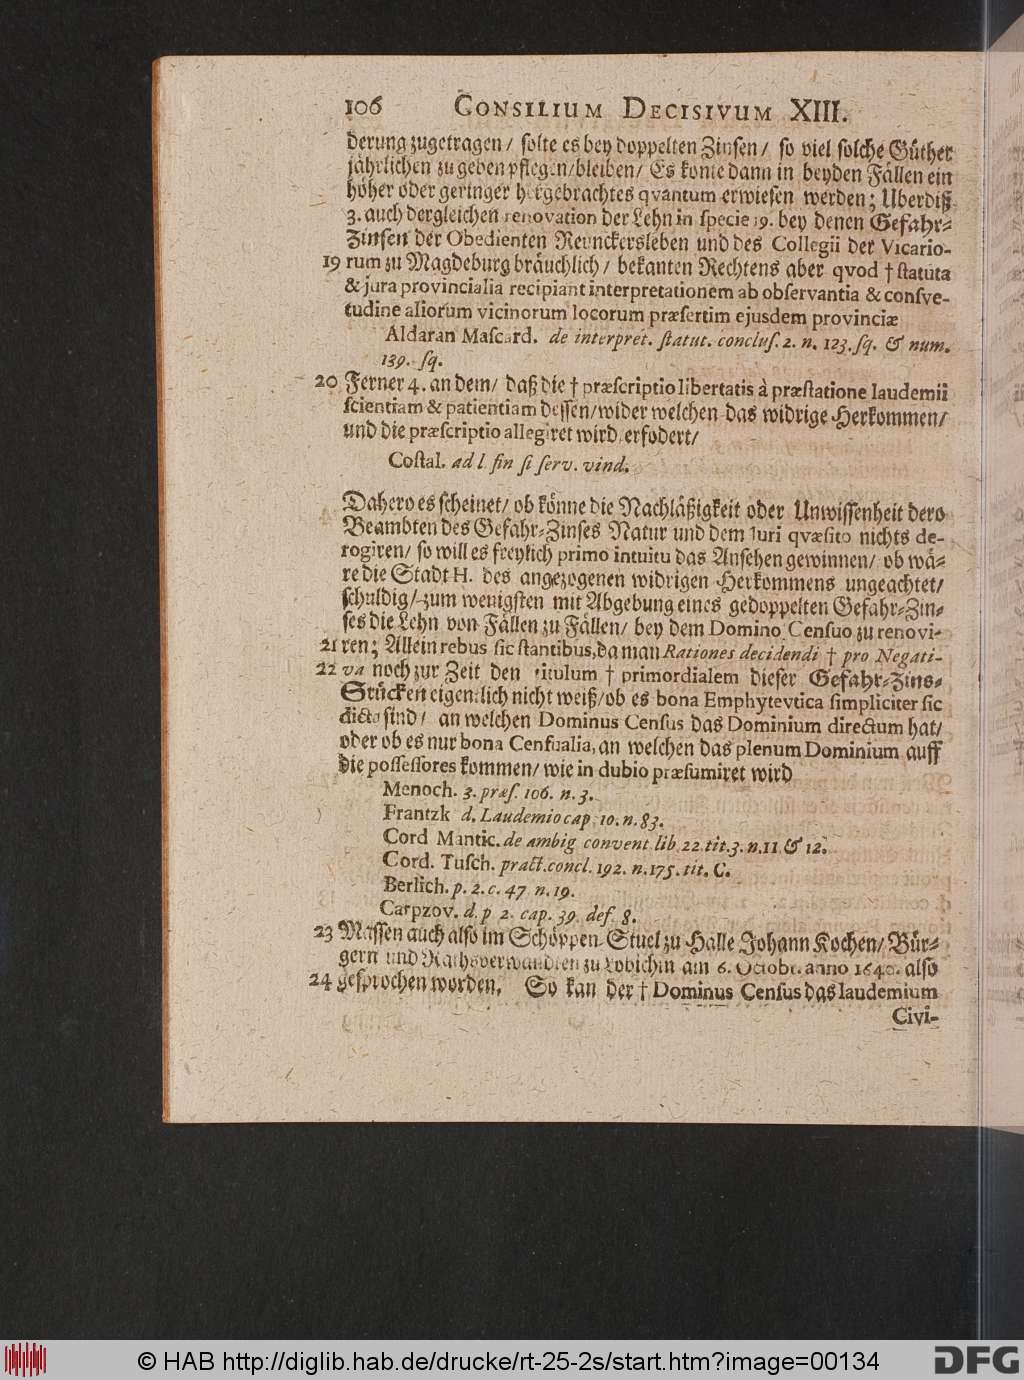 106 CONSILIUM DECISIVUM XIII.
derung zugetragen / solte es bey doppelten Zinsen / so viel solche Güther
jährlichen zu geben pflegen / bleiben / Es konte dann in beyden Fällen ein
höher oder geringer hergebrachtes qvantum erwiesen werden; Uberdiß
3. auch dergleichen renovation der Lehn in specie 19. bey denen Gefahr-
Zinsen der Obedienten Reunckersleben und des Collegii der Vicario-
19 rum zu Magdeburg bräuchlich / bekanten Rechtens aber qvod † statuta
& jura provincialia recipiant interpretationem ab observantia & consve-
tudine aliorum vicinorum locorum præsertim ejusdem provinciæ
Aldaran Mascard. de interpret. statut. conclus. 2. n. 123. sq. & num.
139. sq.
20 Ferner 4. an dem / daß die † præscriptio libertatis à præstatione laudemii
scientiam & patientiam dessen / wider welchen das widrige Herkommen /
und die præscriptio allegiret wird, erfodert /
Costal. ad l fin si serv. vind.
Dahero es scheinet / ob könne die Nachläßigkeit oder Unwissenheit dero
Beambten des Gefahr-Zinses Natur und dem Juri qvæsito nichts de-
rogiren / so will es freylich primo intuitu das Ansehen gewinnen / ob wä-
re die Stadt H. des angezogenen widrigen Herkommens ungeachtet /
schuldig / zum wenigsten mit Abgebung eines gedoppelten Gefahr-Zin-
ses die Lehn von Fällen zu Fällen / bey dem Domino Censuo zu renovi-
21 ren; Allein rebus sic stantibus, da man Rationes decidendi † pro Negati-
22 va noch zur Zeit den titulum † primordialem dieser Gefahr-Zins-
Stücken eigentlich nicht weiß / ob es bona Emphytevtica simpliciter sic
dicta sind / an welchen Dominus Census das Dominium directum hat /
oder ob es nur bona Censualia, an welchen das plenum Dominium auff
die possessores kommen / wie in dubio præsumiret wird
Menoch. 3. præs. 106. n. 3.
Frantzk d. Laudemio cap. 10. n. 83.
Cord Mantic. de ambig convent lib. 22. tit. 3. n. 11 & 12.
Cord. Tusch. pract. concl. 192. n. 175. tit. C.
Berlich. p. 2. c. 47 n. 19.
Carpzov. d. p 2. cap. 39. def. 8.
23 Massen auch also im Schöppen-Stuel zu Halle Johann Kochen / Bür-
gern und Rathsverwandten zu Lobichin am 6. Octobr. anno 1640. also
24 gesprochen worden. So kan der † Dominus Census das laudemium
Civi-
© HAB http://diglib.hab.de/drucke/rt-25-2s/start.htm?image=00134
DFG